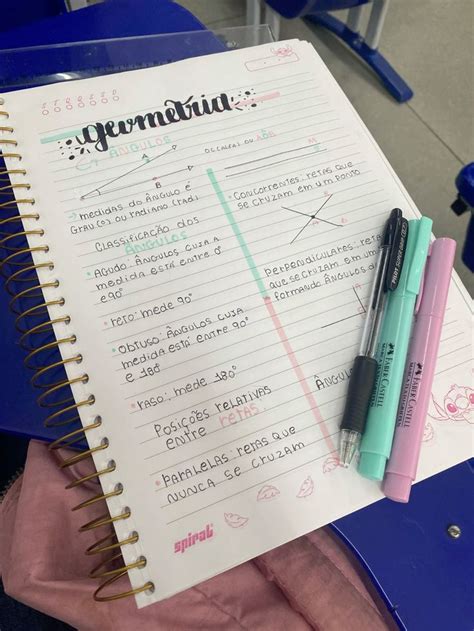 S T Q Q S S D
geometria
ÂNGULOS
A
B
→ medidas do ângulo é
grau (o) ou radiano (rad)
Classificação dos
ÂNGULOS
• Agudo: ângulos cuja a
medida está entre 0
e 90°
• reto: mede 90°
• obtuso: ângulos cuja
medida está entre 90°
e 180°
• raso: mede 180°
Posições relativas
entre retas
• Paralelas: retas que
nunca se cruzam
spiral
ou AÔB
• Concorrentes: retas que
se cruzam em um ponto
Perpendiculares: retas
que se cruzam em um
formando ângulos
ÂNGUL
FABER-CASTELL
FABER-CASTELL